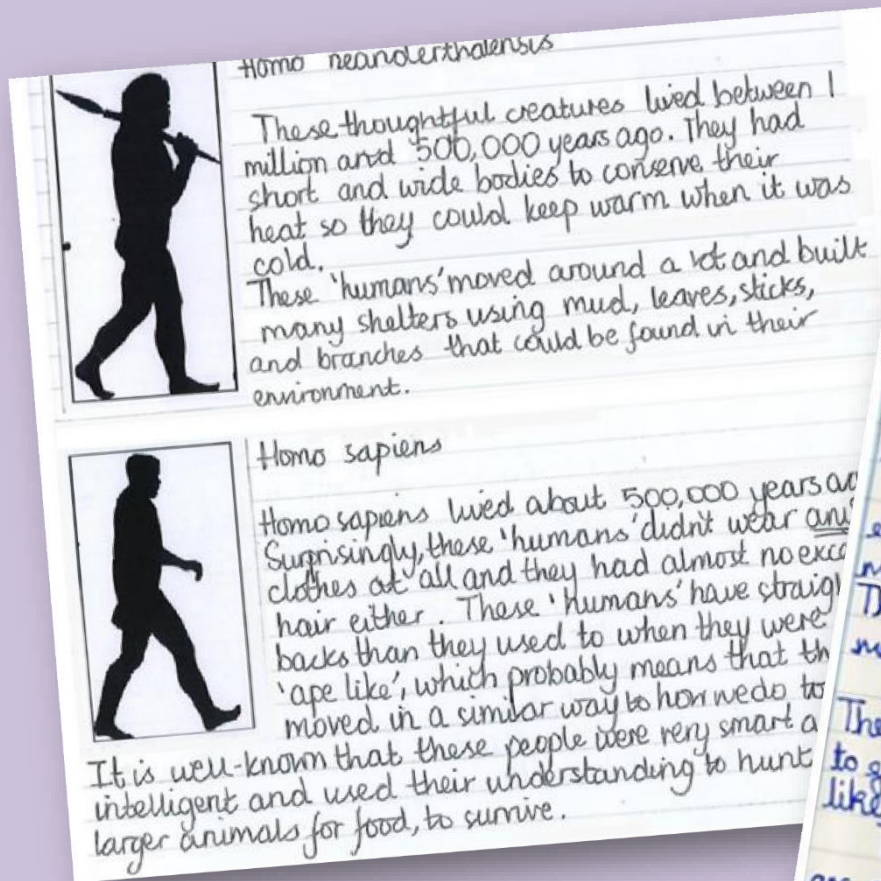 Homo neanderthalensis
These thoughtful creatures lived between 1
million and 500,000 years ago. They had
short and wide bodies to conserve their
heat so they could keep warm when it was
cold.
These 'humans' moved around a lot and built
many shelters using mud, leaves, sticks,
and branches that could be found in their
environment.
Homo sapiens
Homo sapiens lived about 500,000 years
Surprisingly, these 'humans' didn't wear
clothes at all and they had almost no
hair either. These 'humans' have
backs than they used to when they were
'ape like', which probably means that
moved in a similar way to how we do
It is well-known that these people were very smart
intelligent and used their understanding to hunt
larger animals for food, to survive.
The
to
like